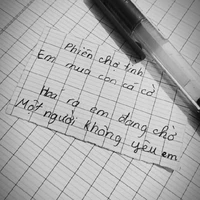 Phiên chợ tình
Em mua con cá cờ
Hoa ra em đang chờ
Một người không yêu em